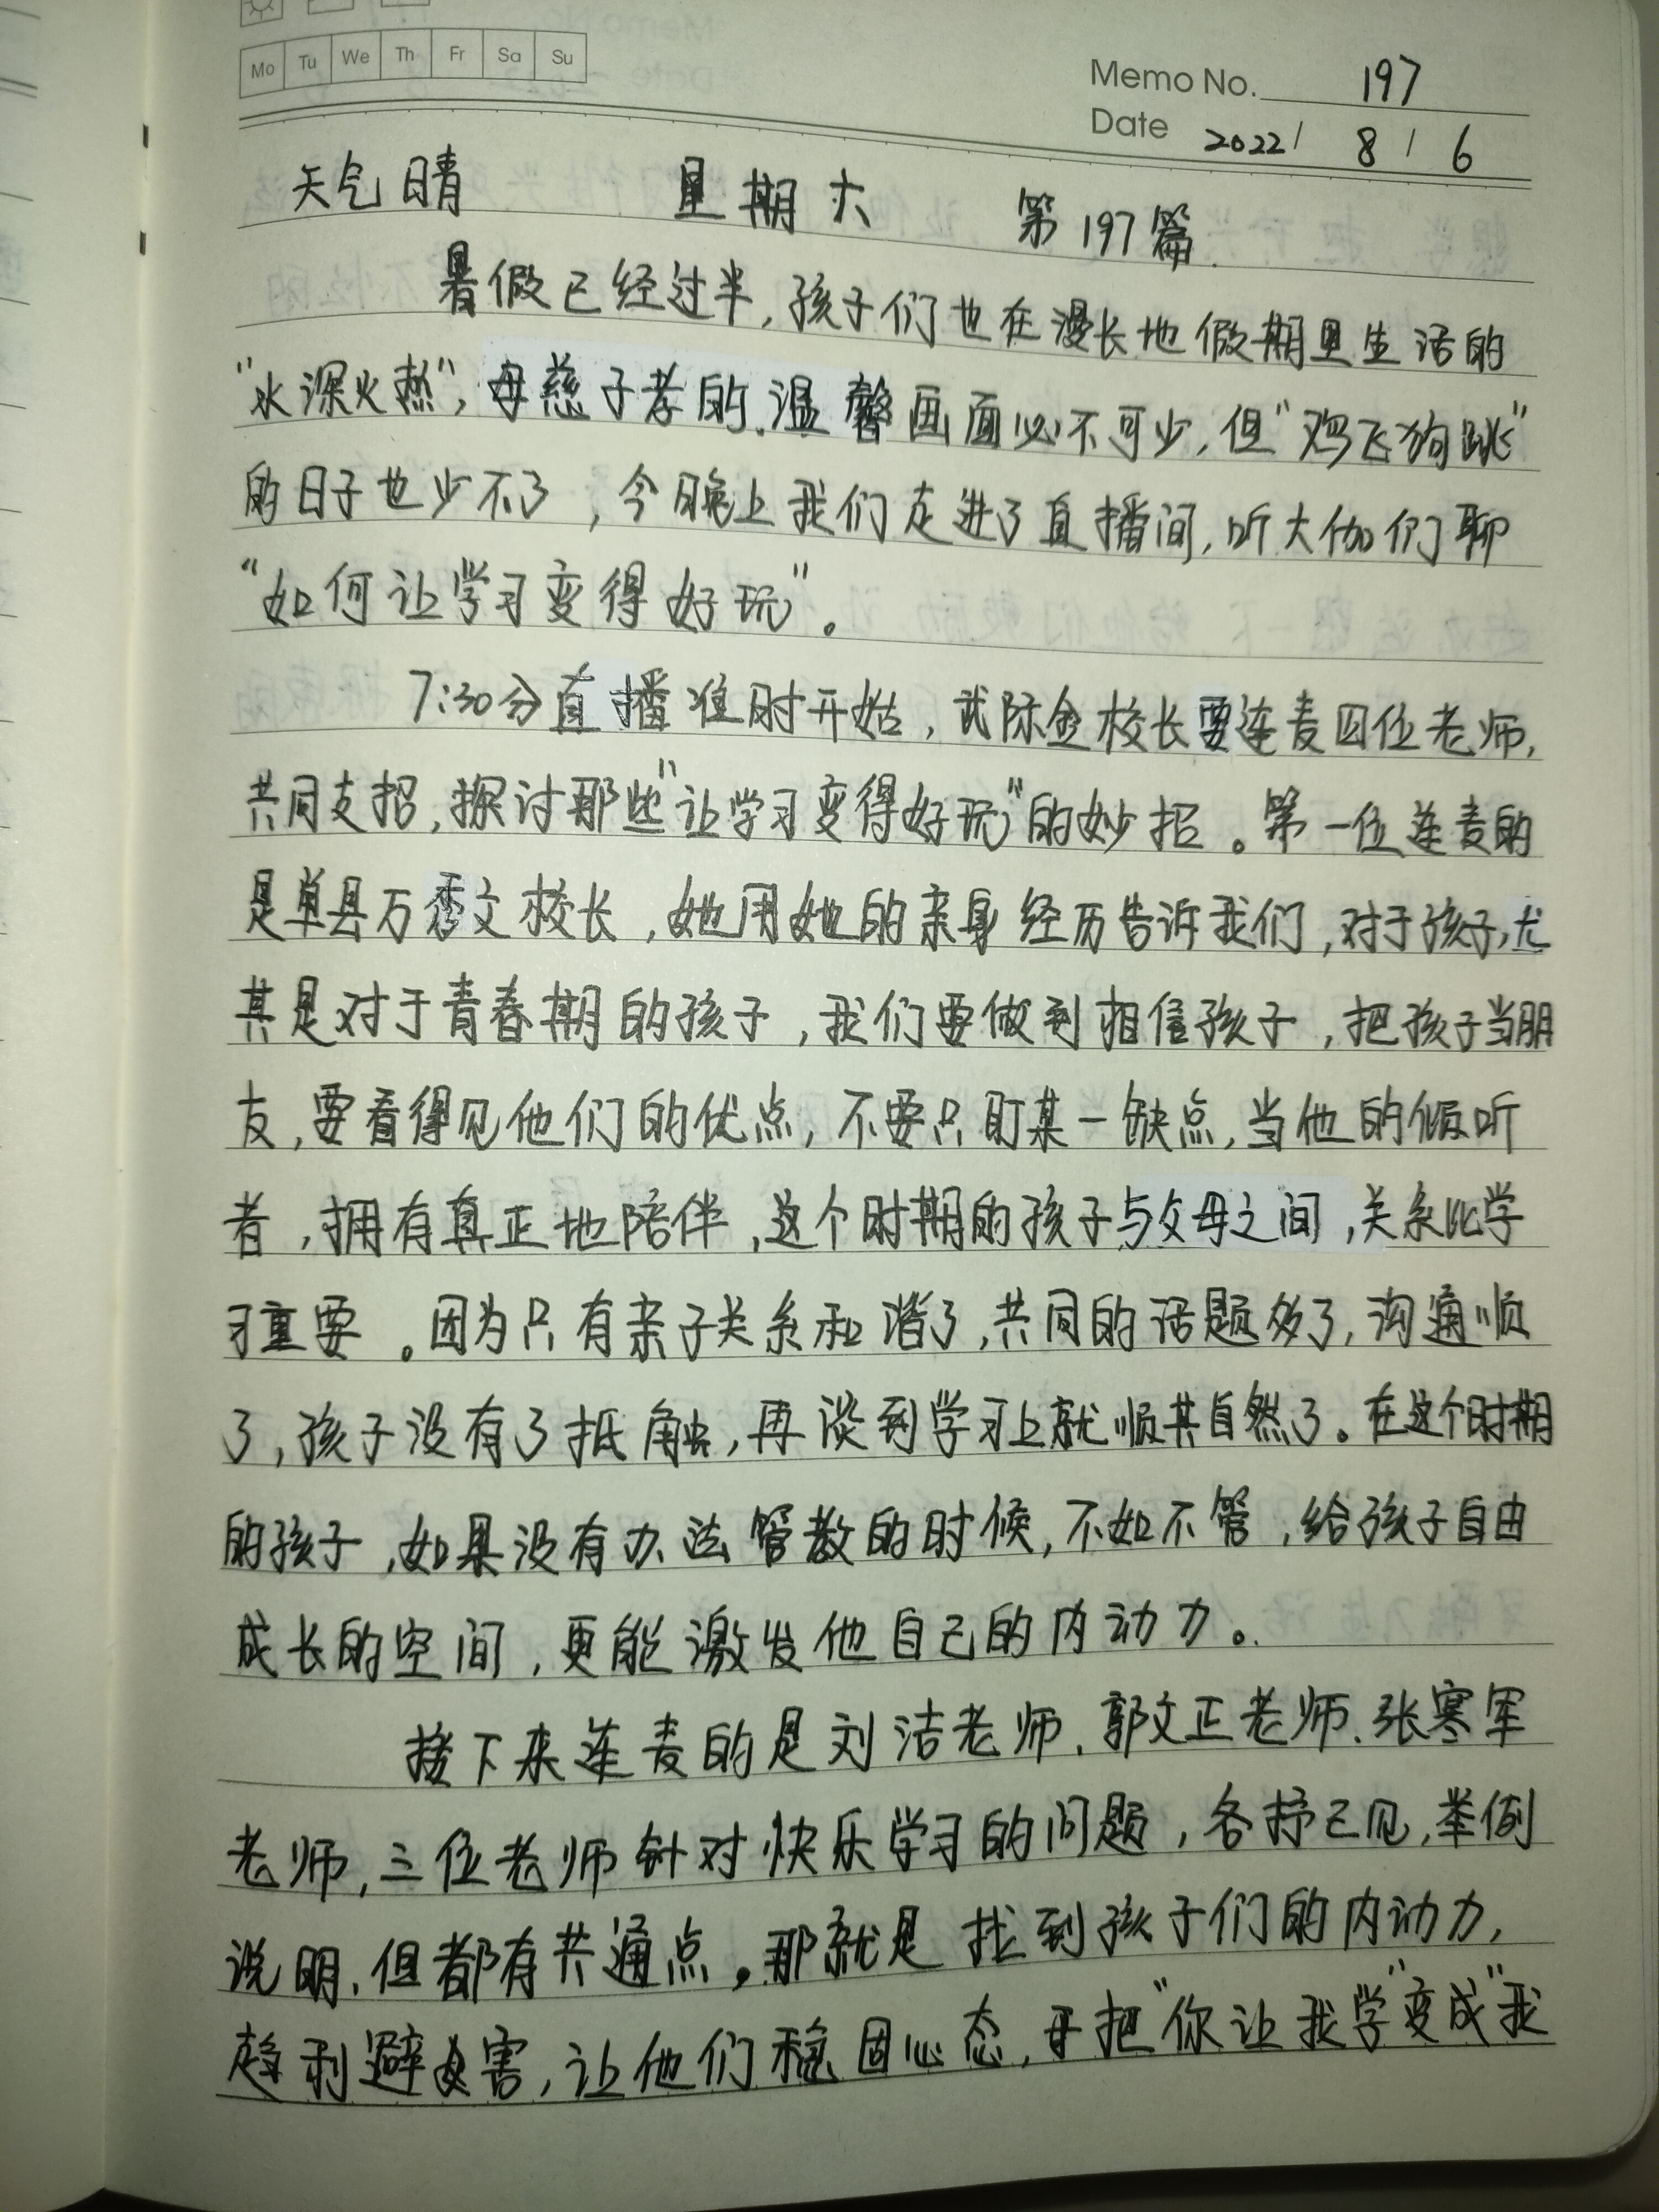 Mo Tu We Th Fr Sa Su
Memo No. 197
Date 2022 / 8 / 6
天气晴 星期六 第197篇.
暑假已经过半,孩子们也在漫长地假期里生活的
“水深火热”,母慈子孝的温馨画面必不可少,但“鸡飞狗跳”
的日子也少不了,今晚上我们走进了直播间,听大伽们聊
“如何让学习变得好玩”。
7:30分直播准时开始,武际金校长要连麦四位老师,
共同支招,探讨那些“让学习变得好玩”的妙招。第一位连麦的
是单县万秀文校长,她用她的亲身经历告诉我们,对于孩子,尤
其是对于青春期的孩子,我们要做到相信孩子,把孩子当朋
友,要看得见他们的优点,不要只盯某一缺点,当他的倾听
者,拥有真正地陪伴,这个时期的孩子与父母之间,关系比学
习重要。因为只有亲子关系和谐了,共同的话题多了,沟通顺
了,孩子没有了抵触,再谈到学习上就顺其自然了。在这个时期
的孩子,如果没有办法管教的时候,不如不管,给孩子自由
成长的空间,更能激发他自己的内动力。
接下来连麦的是刘洁老师、郭文正老师、张寒军
老师,三位老师针对快乐学习的问题,各抒己见,举例
说明,但都有共通点,那就是找到孩子们的内动力,
趋利避害,让他们稳固心态,并把“你让我学”变成“我